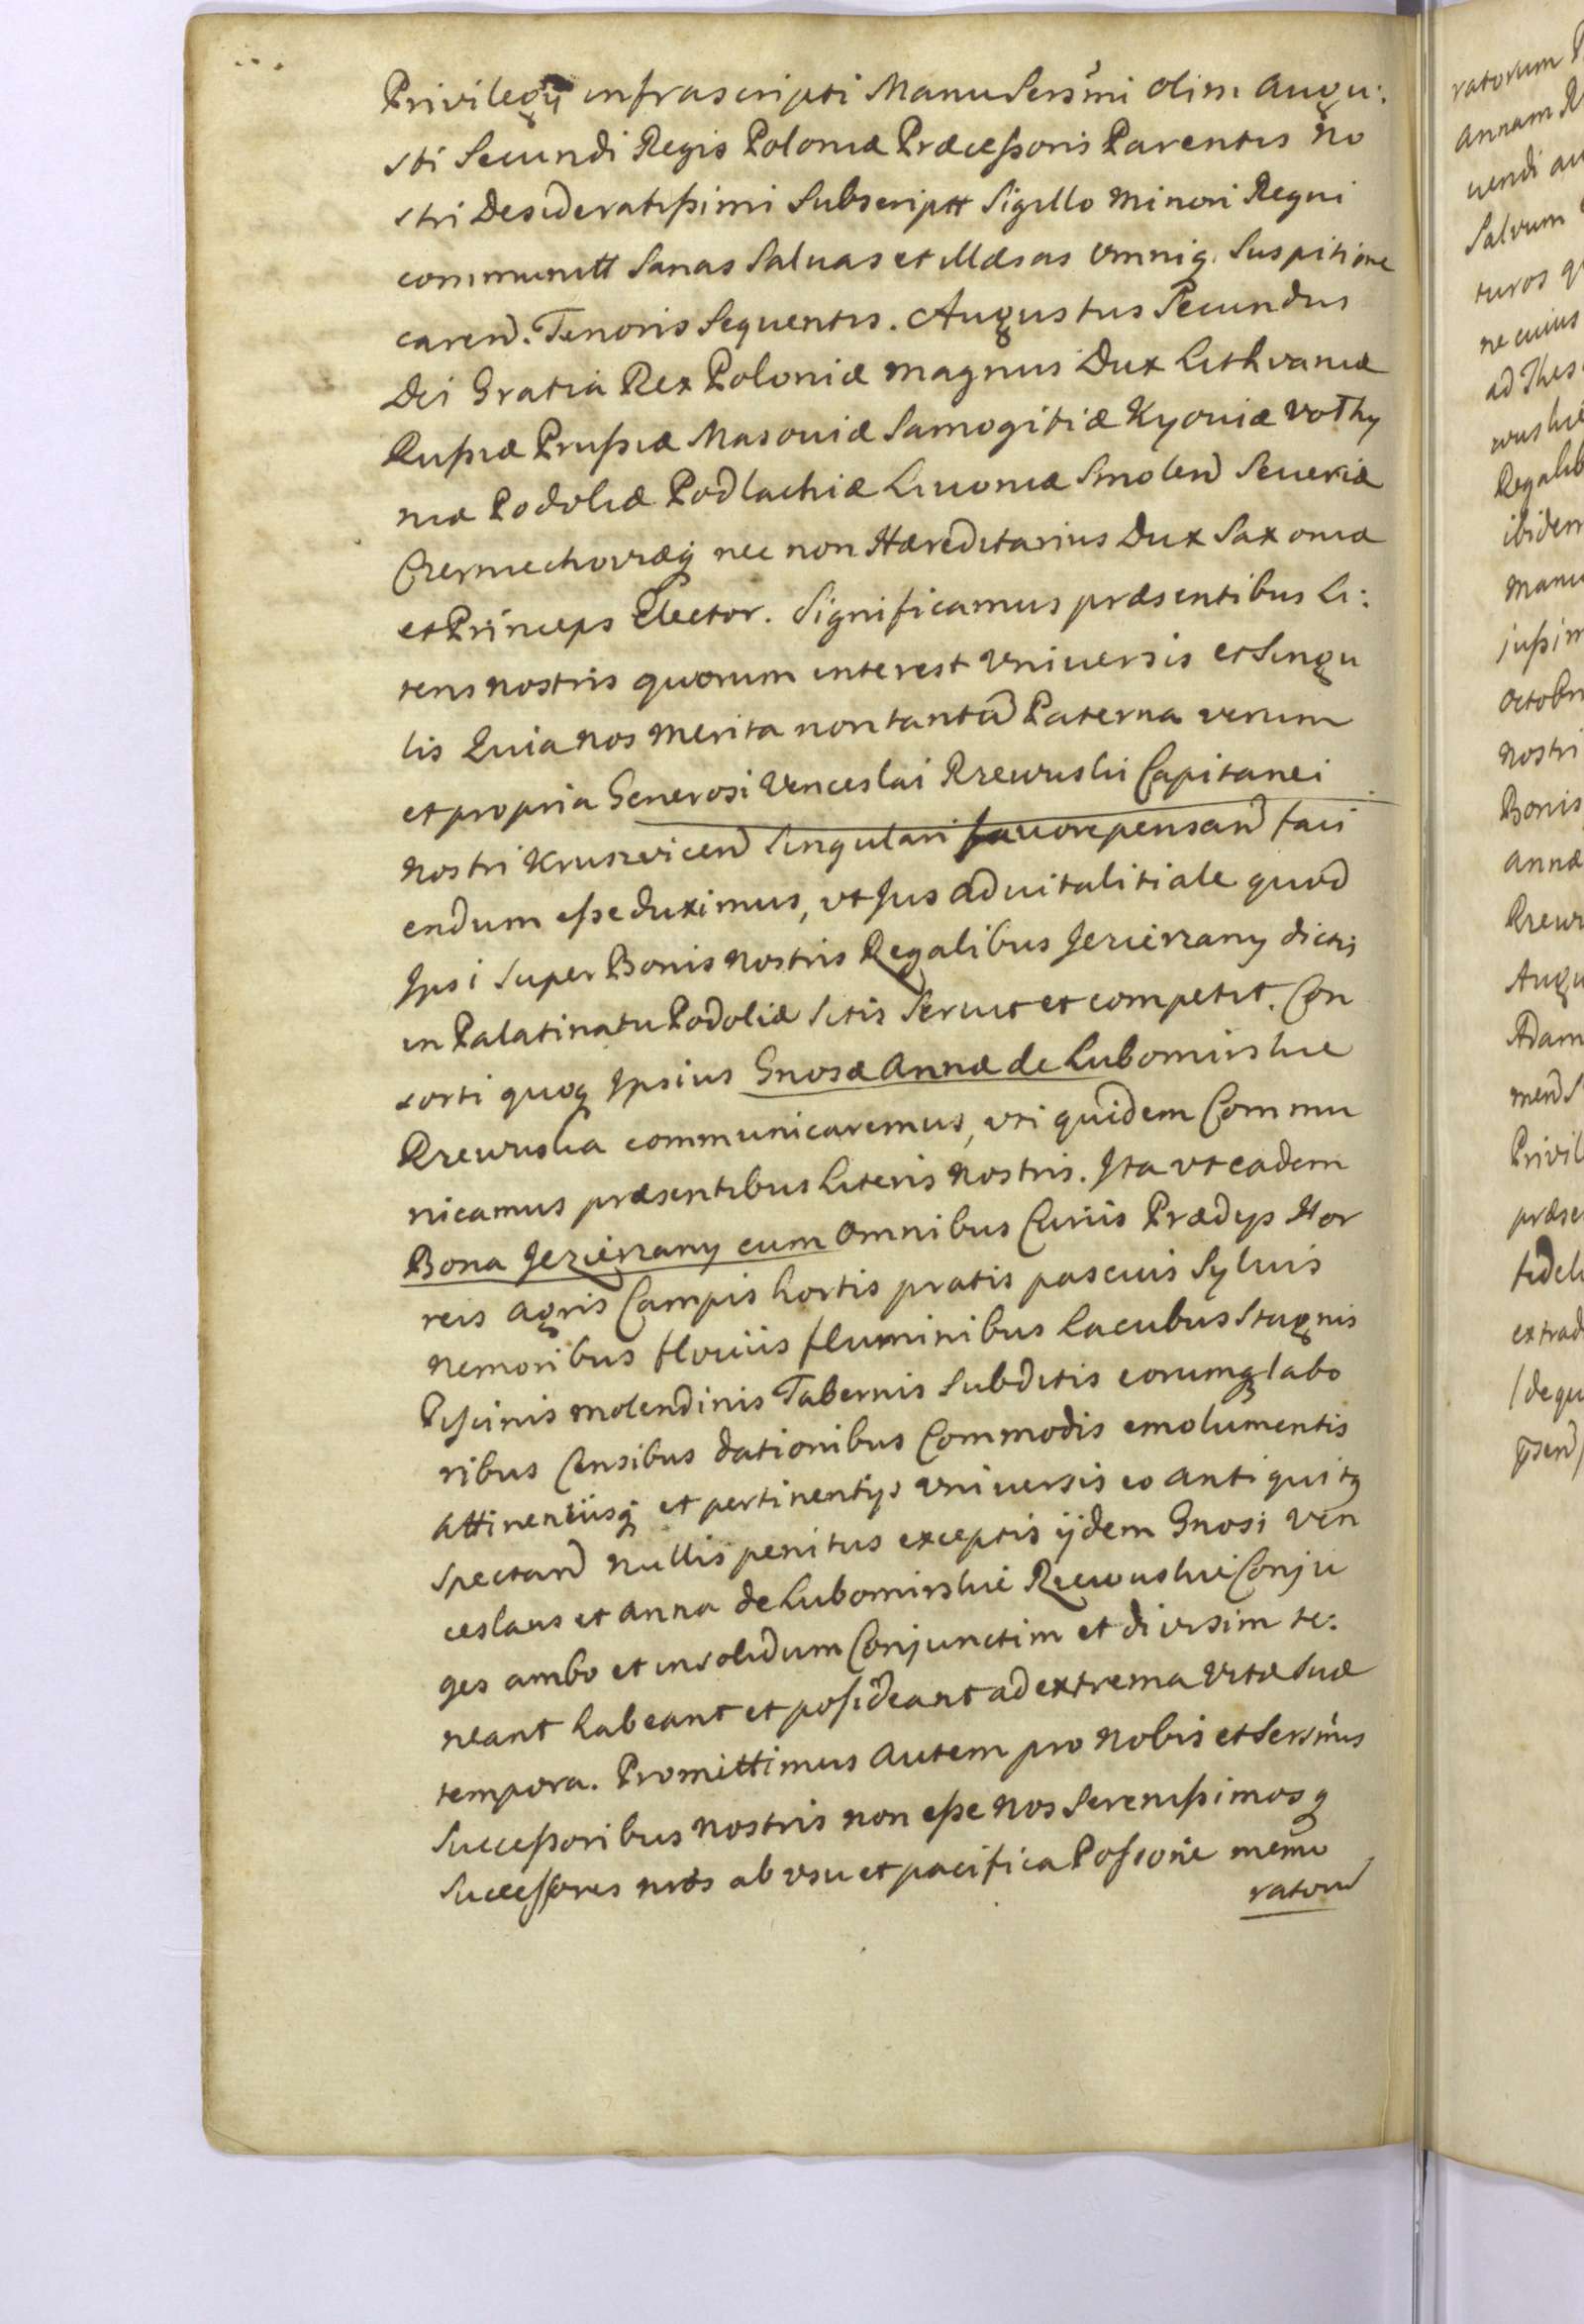 Privilegij infrascripti Manu Sersmi olim Augu:
sti Secundi Regis Poloniæ Præcessoris Parentis No
stri Desideratissimi Subscriptt Sigillo Minori Regni
communitt Sanas Saluas et illæsas omniq. Suspitione
carend. Tenoris Sequentis. Augustus Secundus
Dei Gratia Rex Poloniæ Magnus Dux Lithvaniæ
Russiæ Prussiæ Masouiæ Samogitiæ Kyouiæ Volhy
niæ Podoliæ Podlachiæ Liuoniæ Smolend Seueriæ
Czerniechoviæq nec non Hæreditarius Dux Saxoniæ
et Princeps Elector. Significamus præsentibus Li:
teris nostris quorum interest Vniuersis et Singu
lis Quia nos Merita non tantũ Paterna verum
et propria Generosi Venceslai Rzewuski Capitanei
Nostri Kruszvicend Singulari fauore pensand faci
endum esse duximus, vt Jus aduitalitiale quod
Ipsi Super Bonis Nostris Regalibus Jezierzany dictis
in Palatinatu Podoliæ Sitis Seruit et competit. Con
sorti quoq Ipsius Gnosæ Annæ de Lubomirskie
Rzewuska communicaremus, vti quidem Commu
nicamus præsentibus Literis Nostris. Ita vt eadem
Bona Jezierzany cum Omnibus Curiis Prædijs Hor
reis Agris Campis hortis pratis pascuis Syluis
Nemoribus fluuiis fluminibus Lacubus Stagnis
Piscinis Molendinis Tabernis Subditis eorumq labo
ribus Censibus dationibus Commodis emolumentis
Attinentiisq et pertinentijs Vniuersis eo antiquitq
Spectand Nullis penitus exceptis ijdem Gnosi Ven
ceslaus et Anna de Lubomirskie Rzewuskie Conju
ges ambo et insolidum Conjunctim et diuisim te:
neant habeant et possideant ad extrema Vitæ Suæ
tempora. Promittimus Autem pro Nobis et Sersmis
Successoribus Nostris non esse Nos Serenissimosq
Successores nros ab vsu et pacifica Possione memo
ratord
ratorum
Annam
uendi
Saluum
turos
ne cuius
ad Thes
Regalib
ibidem
Manu
jussim
Octobr
Nostri
Bonis
Annæ
Rzew
Augu
Adam
mend
Privil
præse
fideli
extrad